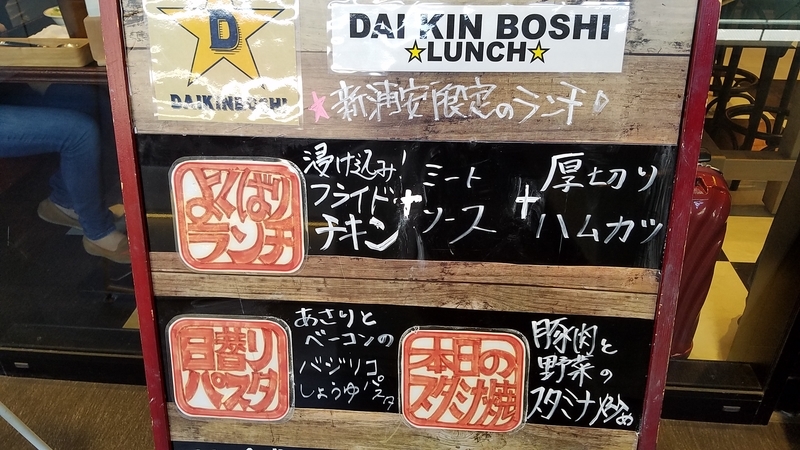 D
DAIKINBOSHI
DAI KIN BOSHI
★LUNCH★
★新浦安限定のランチ♪
よくばり
ランチ
浸け込み!
フライド
チキン
+
ミート
ソース
+
厚切り
ハムカツ
日替り
パスタ
あさりと
ベーコンの
バジリコ
しょうゆパスタ
本日の
スタミナ焼
豚肉と
野菜の
スタミナ炒め